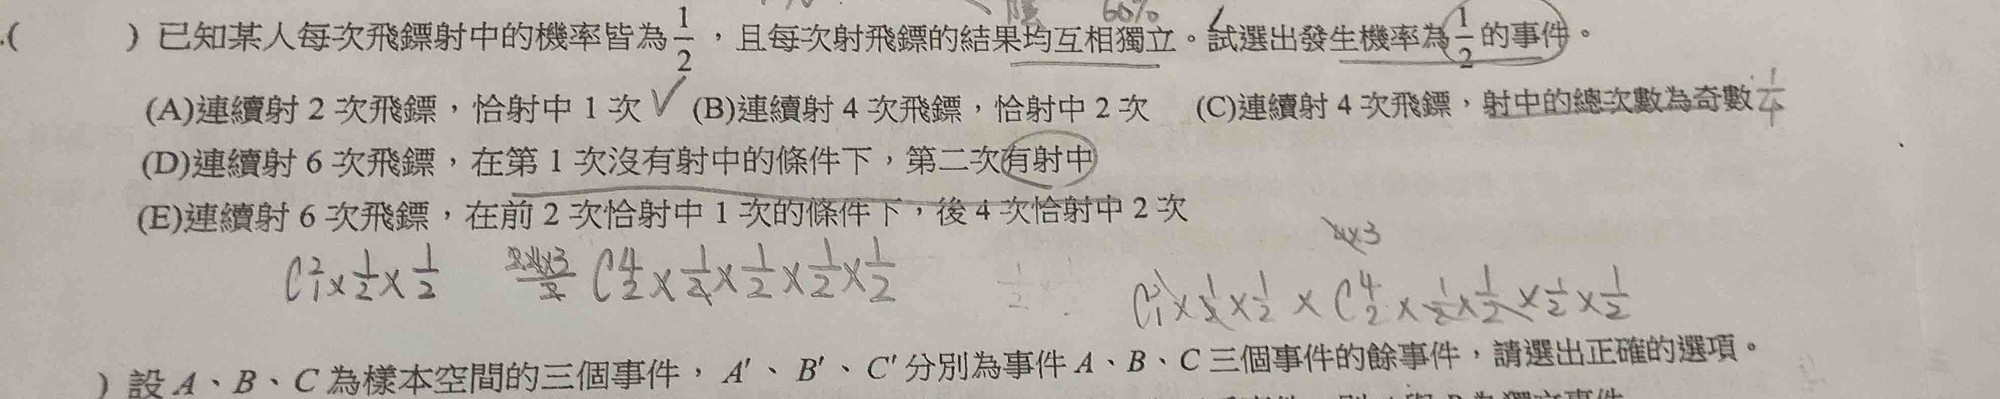 60%
.(　　) 已知某人每次飛鏢射中的機率皆為1/2，且每次射飛鏢的結果均互相獨立。試選出發生機率為1/2的事件。
(A)連續射 2 次飛鏢，恰射中 1 次 ✓ (B)連續射 4 次飛鏢，恰射中 2 次 (C)連續射 4 次飛鏢，射中的總次數為奇數 1/4
(D)連續射 6 次飛鏢，在第 1 次沒有射中的條件下，第二次有射中
(E)連續射 6 次飛鏢，在前 2 次恰射中 1 次的條件下，後 4 次恰射中 2 次
4×3
C²₁×1/2×1/2 C⁴₂×1/2×1/2×1/2×1/2 C²₁×1/2×1/2×C⁴₂×1/2×1/2×1/2×1/2
) 設 A、B、C 為樣本空間的三個事件，A'、B'、C' 分別為事件 A、B、C 三個事件的餘事件，請選出正確的選項。